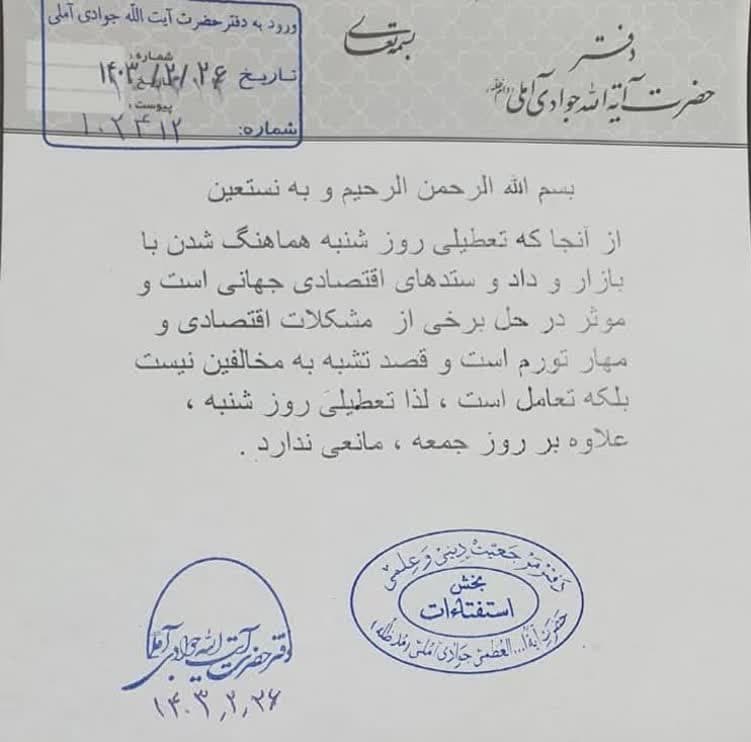 بسمه تعالی
دفتر
حضرت آیة الله جوادی آملی (دام ظله)
ورود به دفتر حضرت آیت الله جوادی آملی
شماره:
تاریخ ۱۴۰۳/۲/۲۶
تاریخ:
پیوست:
شماره: ۱۰۲۴۱۲
بسم الله الرحمن الرحیم و به نستعین
از آنجا که تعطیلی روز شنبه هماهنگ شدن با
بازار و داد و ستدهای اقتصادی جهانی است و
موثر در حل برخی از مشکلات اقتصادی و
مهار تورم است و قصد تشبه به مخالفین نیست
بلکه تعامل است ، لذا تعطیلی روز شنبه ،
علاوه بر روز جمعه ، مانعی ندارد .
دفتر مرجعیت دینی و علمی
بخش
استفتاءات
حضرت آیة ا... العظمی جوادی آملی (مدظله)
دفتر حضرت آیت الله جوادی آملی
۱۴۰۳,۲,۲۶